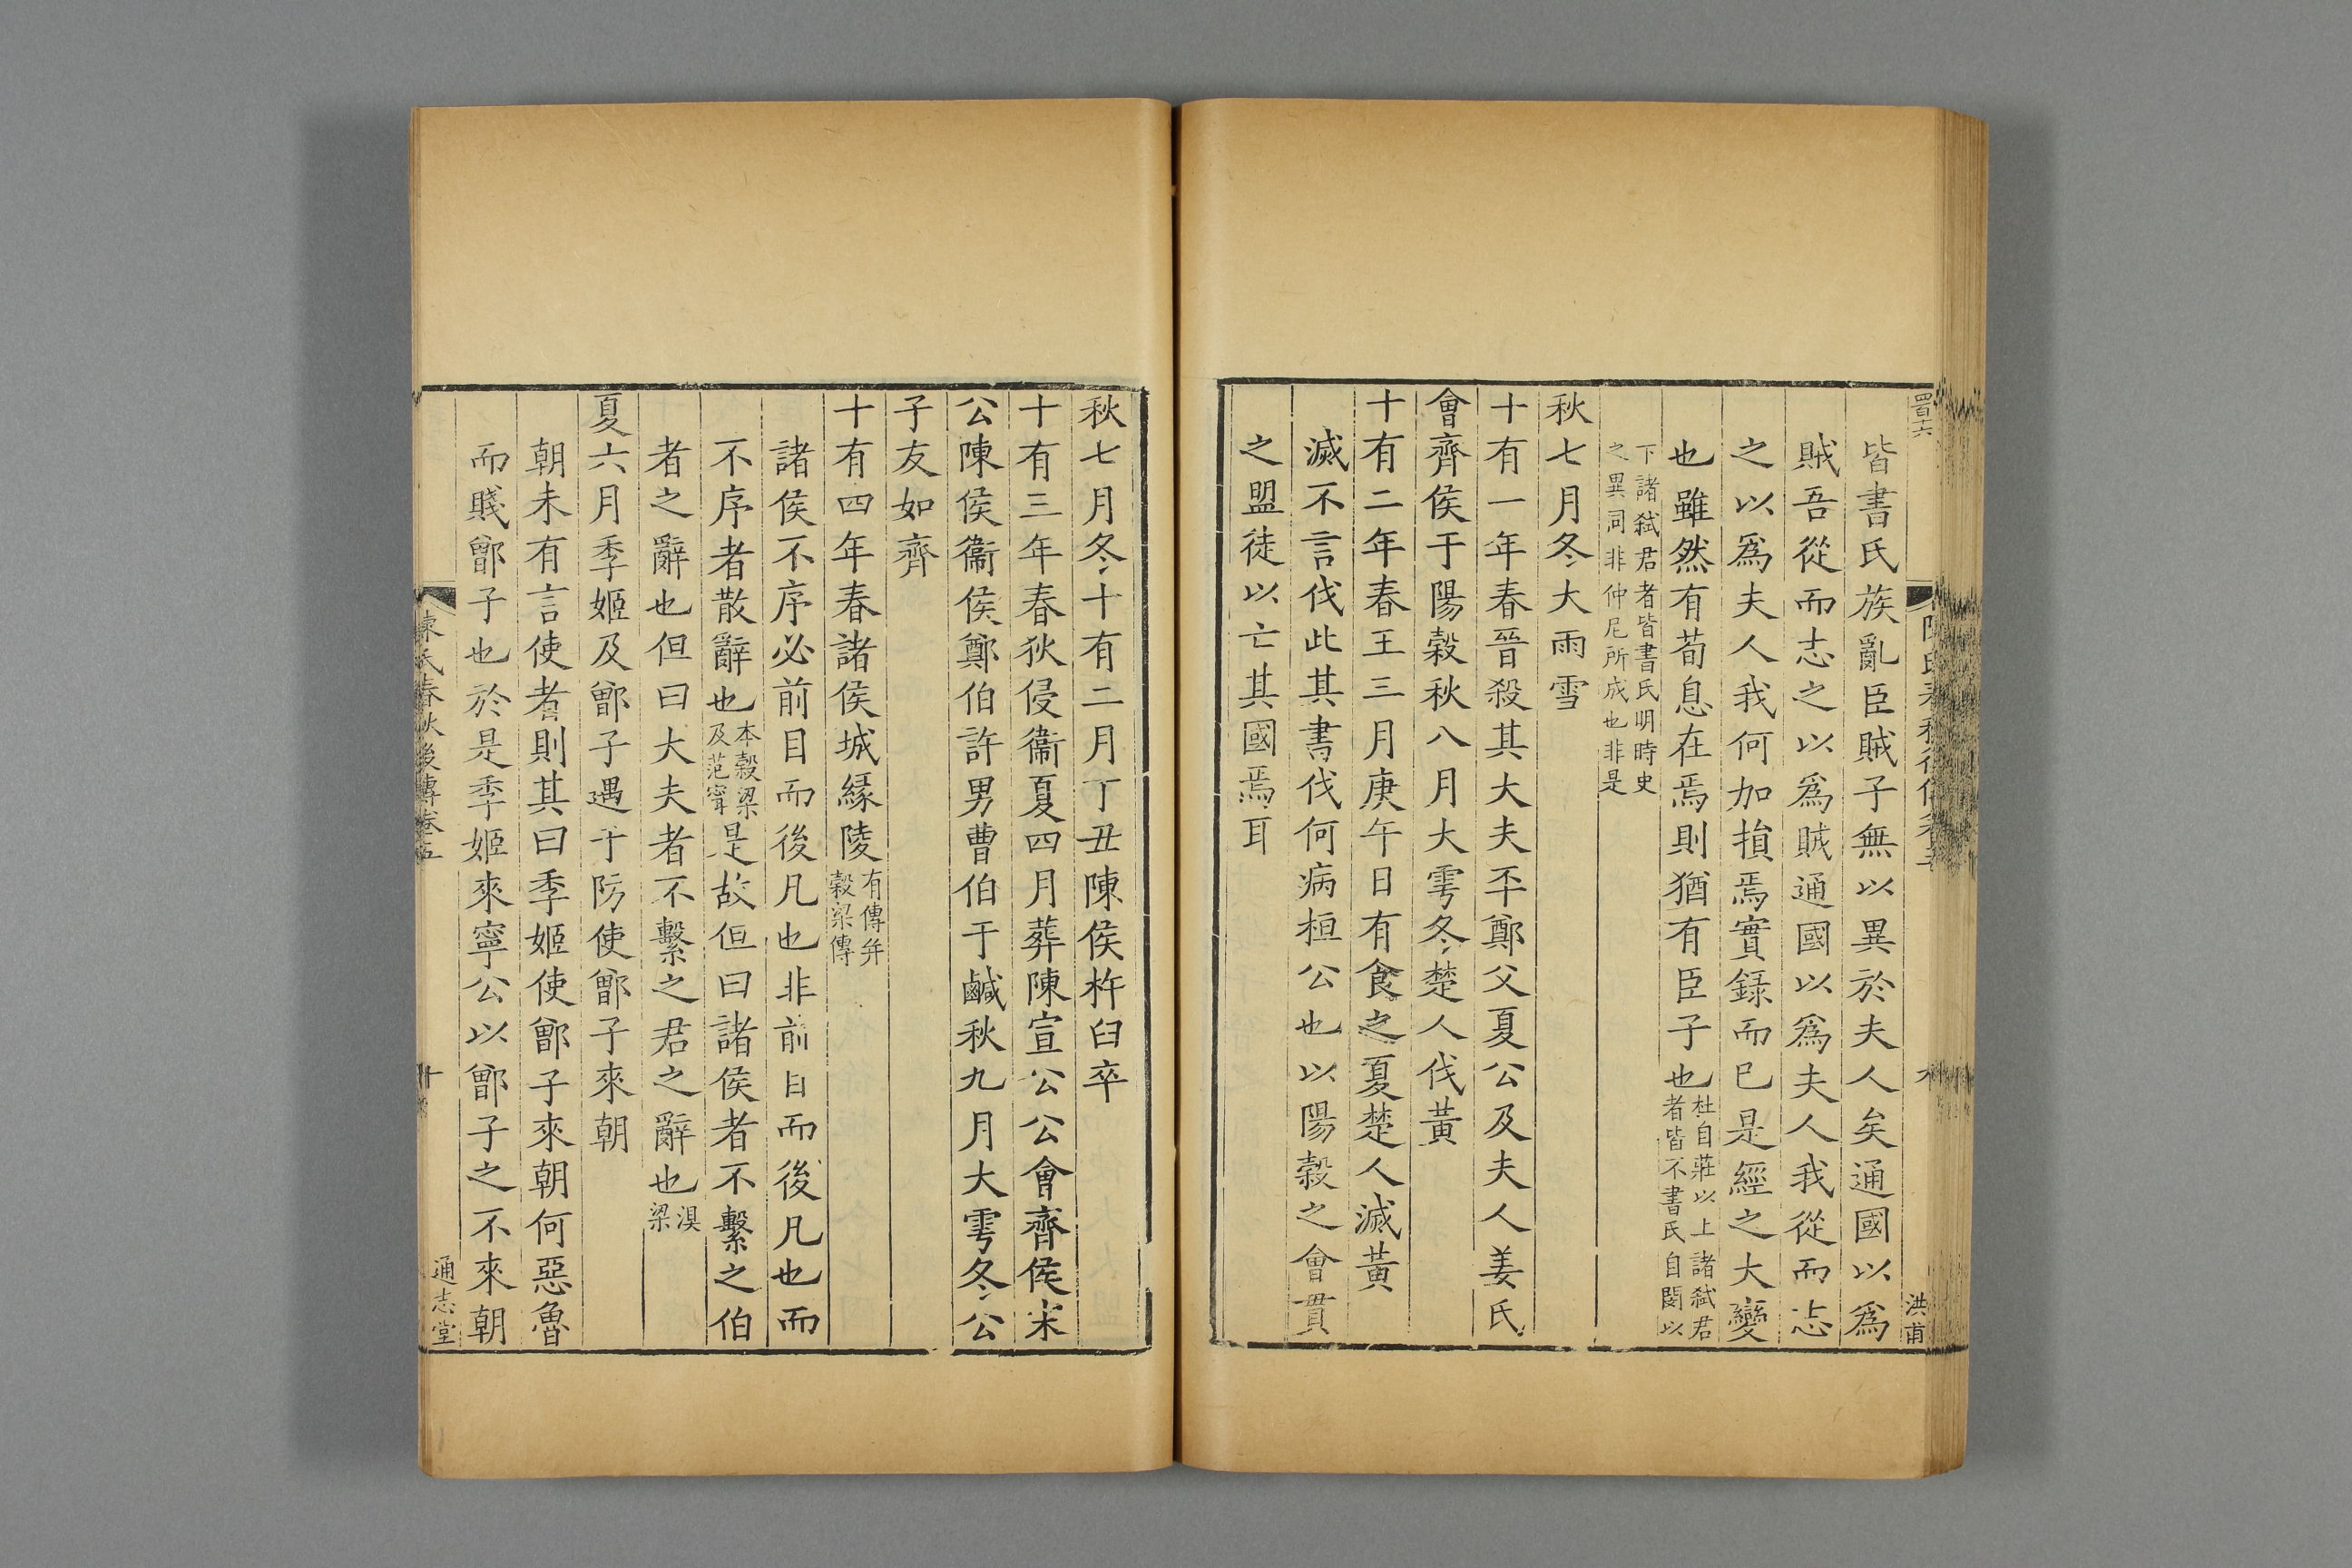 皆書氏族亂臣賊子無以異於夫人矣通國以爲
賊吾從而志之以爲賊通國以爲夫人我從而志
之以爲夫人我何加損焉實録而已是經之大變
也雖然有荀息在焉則猶有臣子也杜自莊以上諸弑君
者皆不書氏自閔以
下諸弑君者皆書氏明時史
之異詞非仲尼所成也非是
秋七月冬大雨雪
十有一年春晉殺其大夫㔻鄭父夏公及夫人姜氏
會齊侯于陽穀秋八月大雩冬楚人伐黃
十有二年春王三月庚午日有食之夏楚人滅黃
滅不言伐此其書伐何病桓公也以陽穀之會貫
之盟徒以亡其國焉耳
洪甫
秋七月冬十有二月丁丑陳侯杵臼卒
十有三年春狄侵衞夏四月葬陳宣公公會齊侯宋
公陳侯衞侯鄭伯許男曹伯于鹹秋九月大雩冬公
子友如齊
十有四年春諸侯城緣陵有傳幷
穀梁傳
諸侯不序必前目而後凡也非前目而後凡也而
不序者散辭也本穀梁
及范甯是故但曰諸侯者不繫之伯
者之辭也但曰大夫者不繫之君之辭也溴
梁
夏六月季姬及鄫子遇于防使鄫子來朝
朝未有言使者則其曰季姬使鄫子來朝何惡魯
而賤鄫子也於是季姬來寧公以鄫子之不來朝
陳氏春秋後傳卷五
十
通志堂